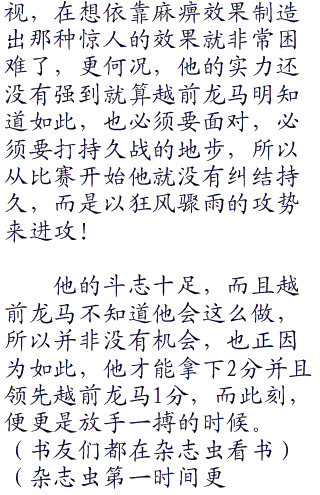 视，在想依靠麻痹效果制造
出那种惊人的效果就非常困
难了，更何况，他的实力还
没有强到就算越前龙马明知
道如此，也必须要面对，必
须要打持久战的地步，所以
从比赛开始他就没有纠结持
久，而是以狂风骤雨的攻势
来进攻！
他的斗志十足，而且越
前龙马不知道他会这么做，
所以并非没有机会，也正因
为如此，他才能拿下2分并且
领先越前龙马1分，而此刻，
便更是放手一搏的时候。
（书友们都在杂志虫看书）
（杂志虫第一时间更